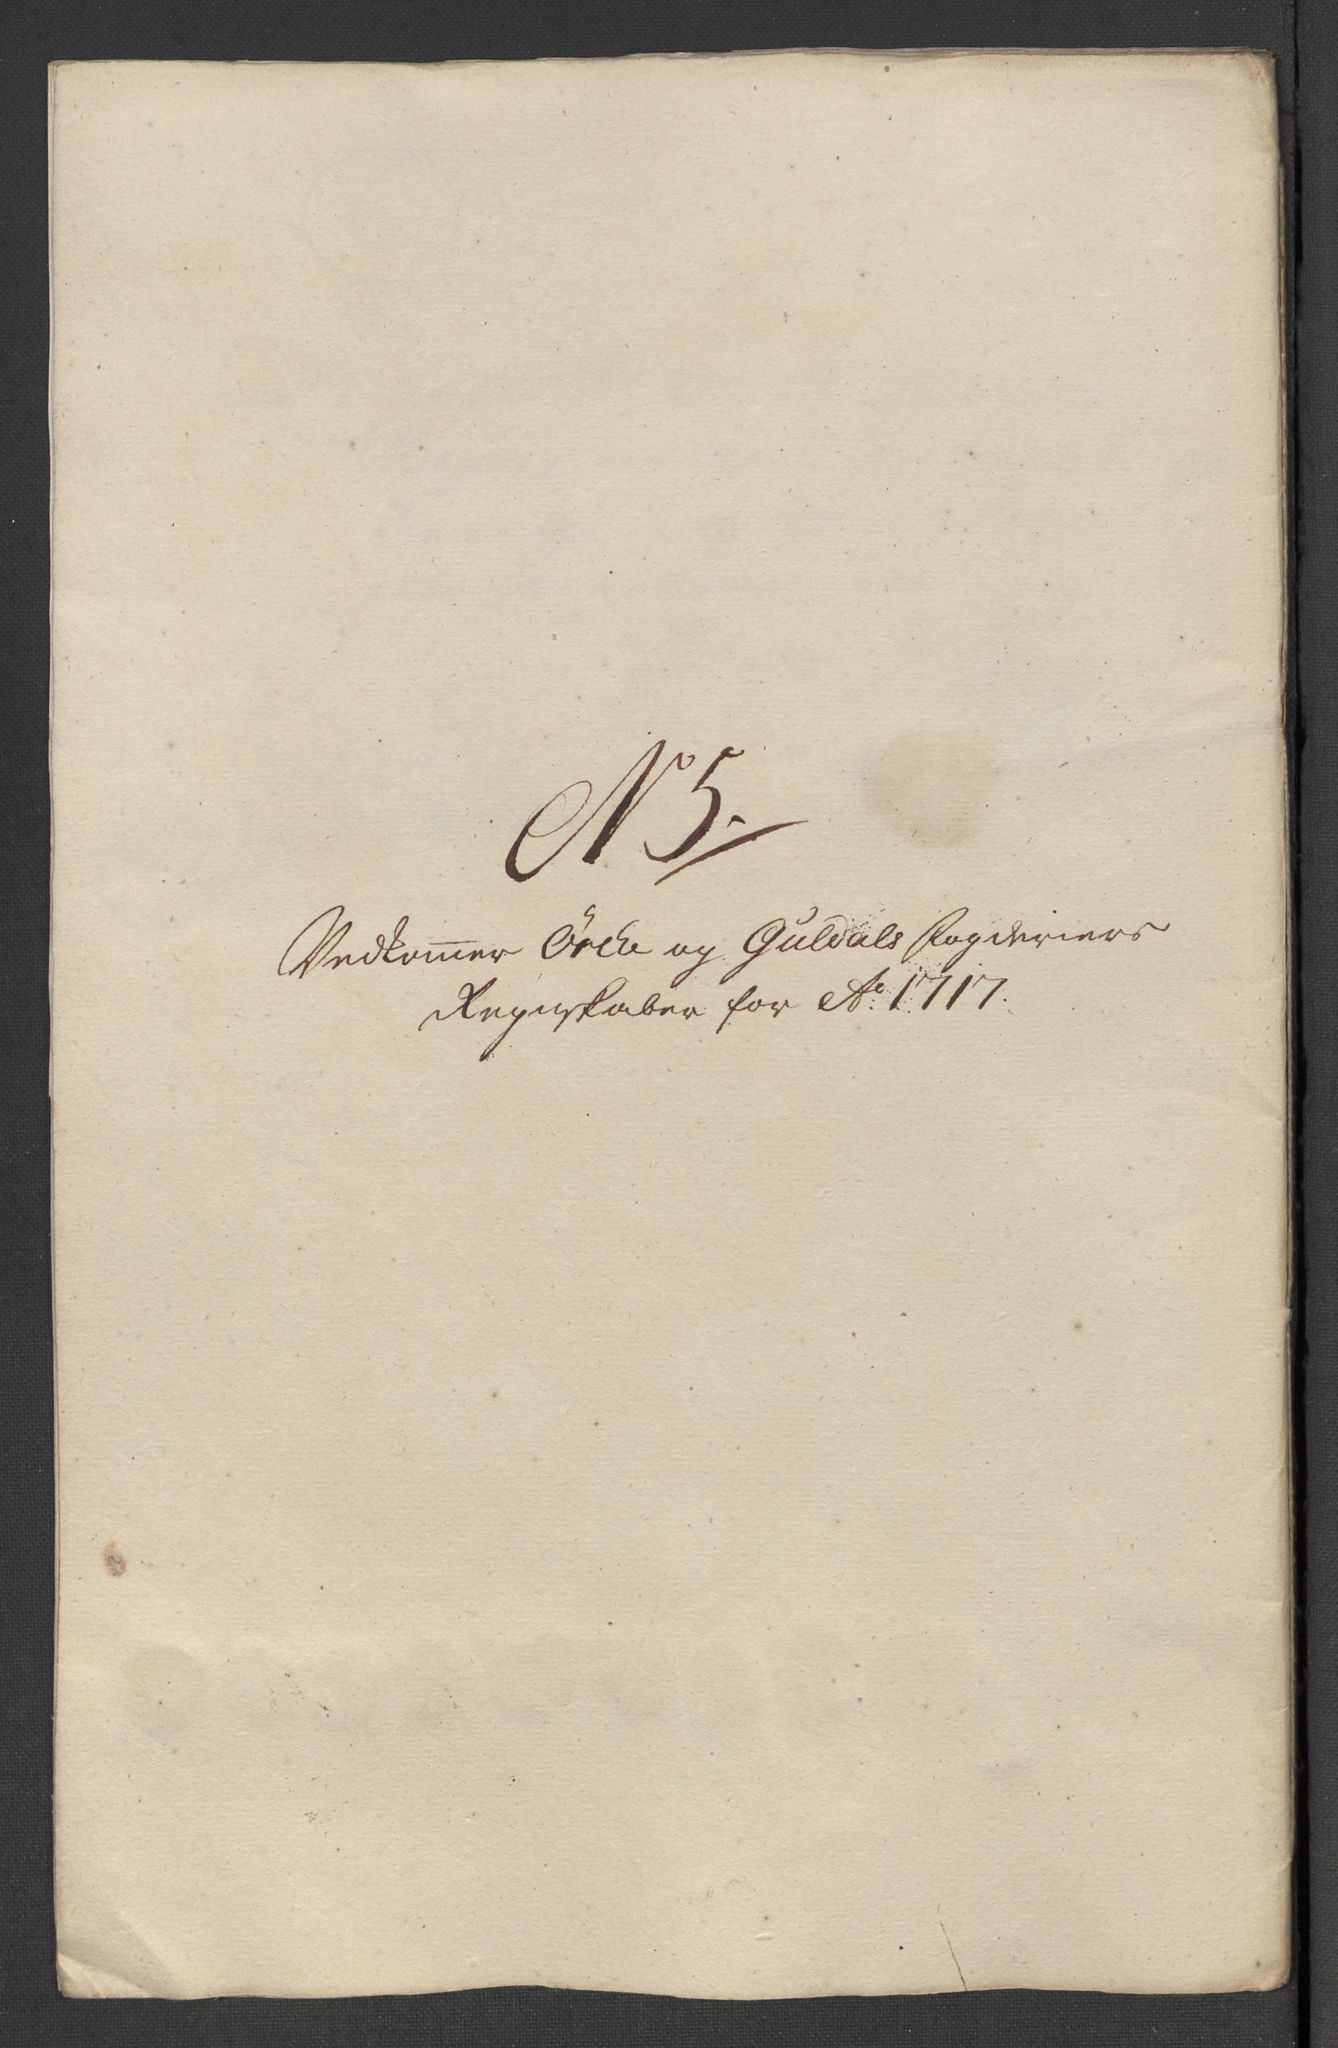 No 5.
Vedkom̄er Örche og Guldals Fogderiers
Regnskaber for Ao. 1717.